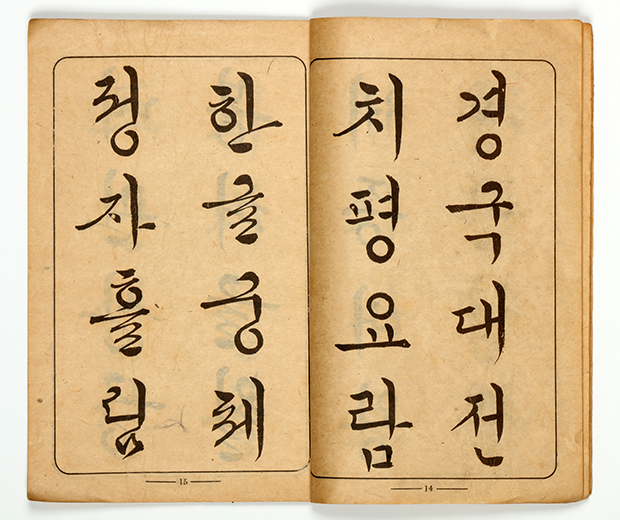 경국대전
치평요람
14
한글궁체
정자흘림
15